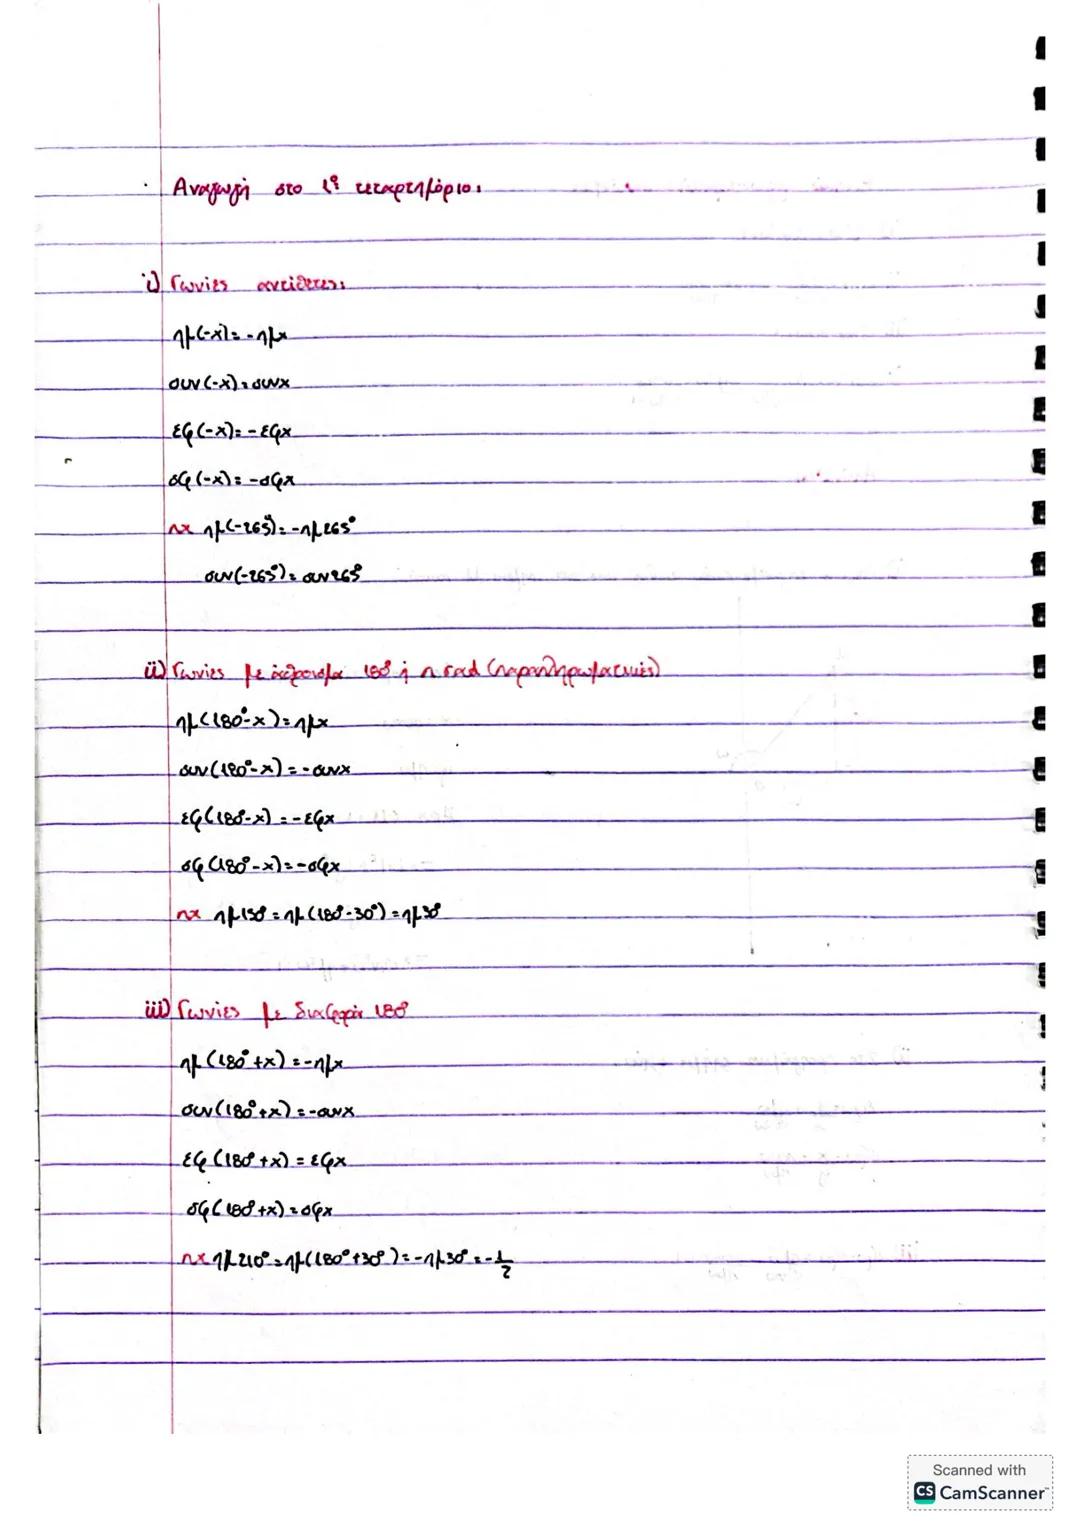 Αναγωγή στο 1º τεταρτημόριο:
i) Γωνίες αντίθετες:
ημ(-x)=-ημx
συν(-x)=συνx
εφ(-x)=-εφx
σφ(-x)=-σφx
πχ ημ(-265°)=-ημ265°
συν(-265°)=συν265°
ii) Γωνίες με άθροισμα 180° ή π rad (παραπληρωματικές)
ημ(180°-x)=ημx
συν(180°-x)=-συνx
εφ(180°-x)=-εφx
σφ(180°-x)=-σφx
πχ ημ150°=ημ(180°-30°)=ημ30°
iii) Γωνίες με διαφορά 180°
ημ(180°+x)=-ημx
συν(180°+x)=-συνx
εφ(180°+x)=εφx
σφ(180°+x)=σφx
πχ ημ210°=ημ(180°+30°)=-ημ30°=-1/2
Scanned with
CS CamScanner